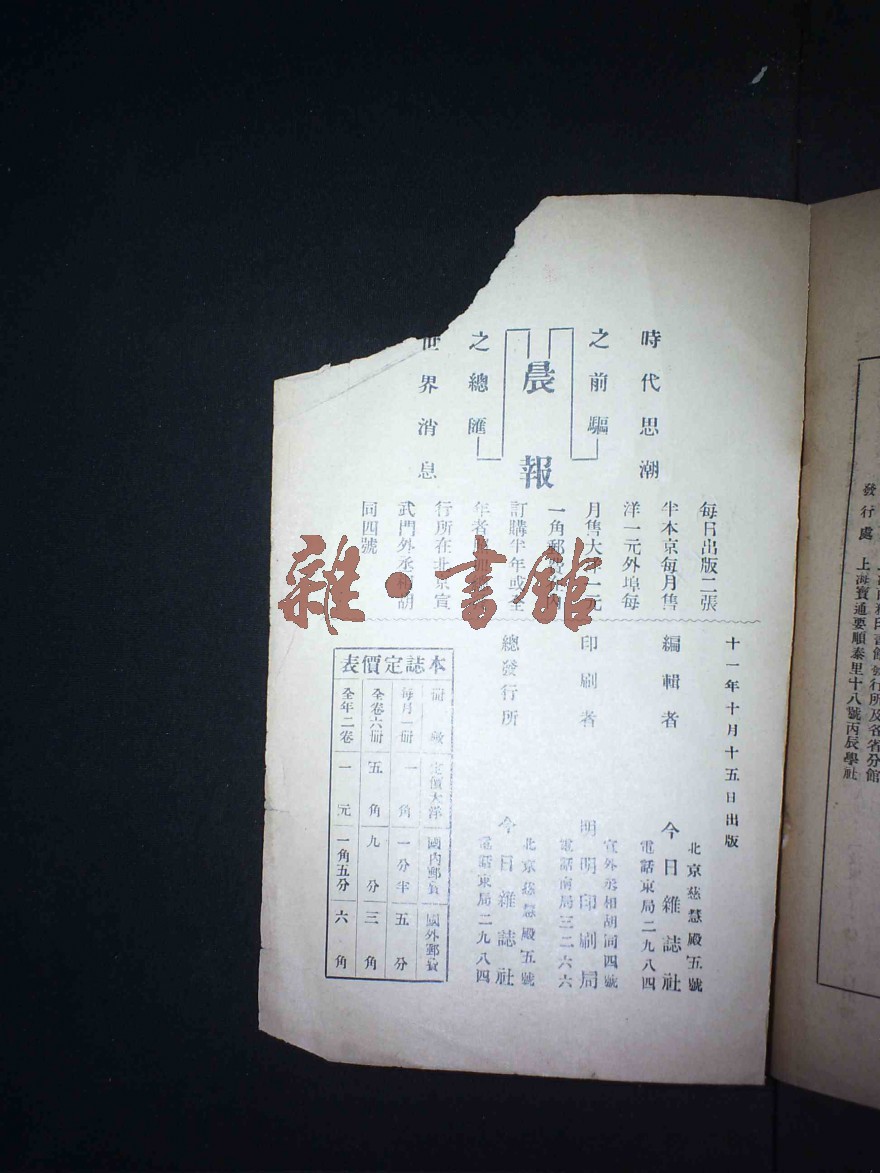 發行處
上海寶通要順泰里十八號丙辰學社
時代思潮
之前驅
晨報
之總匯
世界消息
每日出版二張
半本京每月售
洋一元外埠每
月售大洋一元
一角郵
訂購半年或全
年者
行所在北京宣
武門外丞相胡
同四號
雜·書館
十一年十月十五日出版
編輯者
北京慈慧殿五號
今日雜誌社
電話東局二九八四
印刷者
宣外丞相胡同四號
明明印刷局
電話南局三二六六
總發行所
北京慈慧殿五號
今日雜誌社
電話東局二九八四
本誌定價表
冊數 定價大洋 國內郵費 國外郵費
每月一冊 一角 一分半 五分
全卷六冊 五角 九分 三角
全年二卷 一元 一角五分 六角